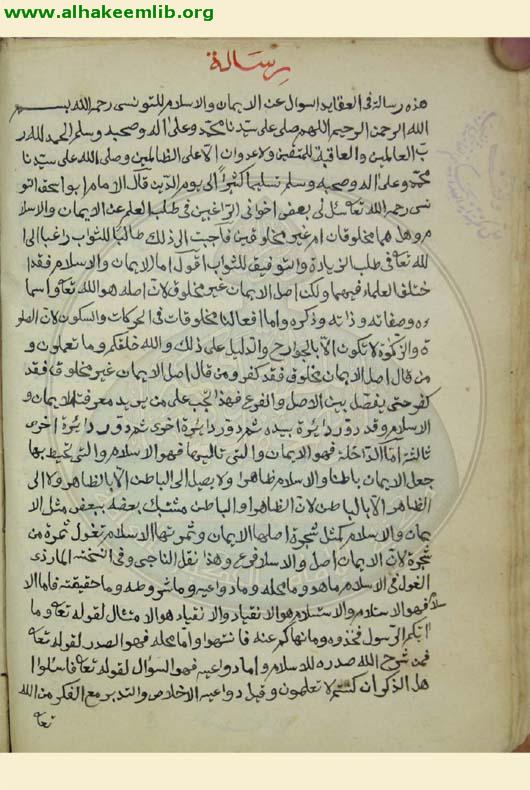 www.alhakeemlib.org
رسالة
هذه رسالة فى العقايد اسوال عن الايمان والاسلام للتونسى رحمه الله بسم
الله الرحمن الرحيم اللهم صلى على سيدنا محمد وعلى اله وصحبه وسلم الحمد لله ر
ب العالمين والعاقبة للمتقين ولا عدوان الا على الظالمين وصلى الله على سيدنا
محمد وعلى اله وصحبه وسلم تسليما كثيرا الى يوم الدين قال الامام ابو اسحق التو
نسى رحمه الله تعا سئلنى بعض اخوانى الراغبين فى طلب العلم عن الايمان والاسلا
م وهل هما مخلوقان ام غير مخلوقين فاجبت الى ذلك طالبا للثواب راغبا الى ا
لله تعا فى طلب الزيادة والتوفيق للثواب اقول اما الايمان والاسلام فقد ا
ختلف العلماء فيهما ولكن اصل الايمان غير مخلوق لان اصله هو الله تعا واسما
ءه وصفاته وذاته وذكره واما افعالنا مخلوقات فى الحركات والسكون لان الصلو
ة والزكوة لا تكون الا بالجوارح والدليل على ذلك والله خلقكم وما تعملون و
من قال اصل الايمان مخلوق فقد كفر ومن قال اصل الايمان غير مخلوق فقد
كفر حتى يفصل بين الاصل والفرع فهذا يجب على من يريد معرفة الايمان و
الاسلام وقد دور دايرة بيده ثم دور دايرة اخرى ثم دور دايرة اخرى
ثالثة اما الداخلة فهو الايمان والتى تاليها فهو الاسلام والتى تحيط بها
جعل الايمان باطنا والاسلام ظاهرا ولا يصل الى الباطن الا بالظاهر ولا الى
الظاهر الا بالباطن لان الظاهر والباطن مشتبك بعضه ببعض مثل الا
يمان والاسلام كمثل شجرة اصلها الايمان وثمرتها الاسلام تقول ثمرة من
شجرة لان الايمان اصل والاسلام فرع وهذا نقل الناجى وفى النسخة الماردى
القول فى الاسلام ما هو وما محله وما دواعيه وما شروطه وما حقيقته فاما الا
سلام فهو الاستلام والاستسلام هو الانقياد والانقياد هو الامتثال لقوله تعا وما
اتيكم الرسول فخذوه وما نهاكم عنه فانتهوا واما محله فهو الصدر لقوله تعا
فمن شرح الله صدره للاسلام واما دواعيه فهو السؤال لقوله تعا فاسئلوا ا
هل الذكر ان كنتم لا تعلمون وقيل دواعيه الاخلاص والتدبر مع الفكر من الله
تعا